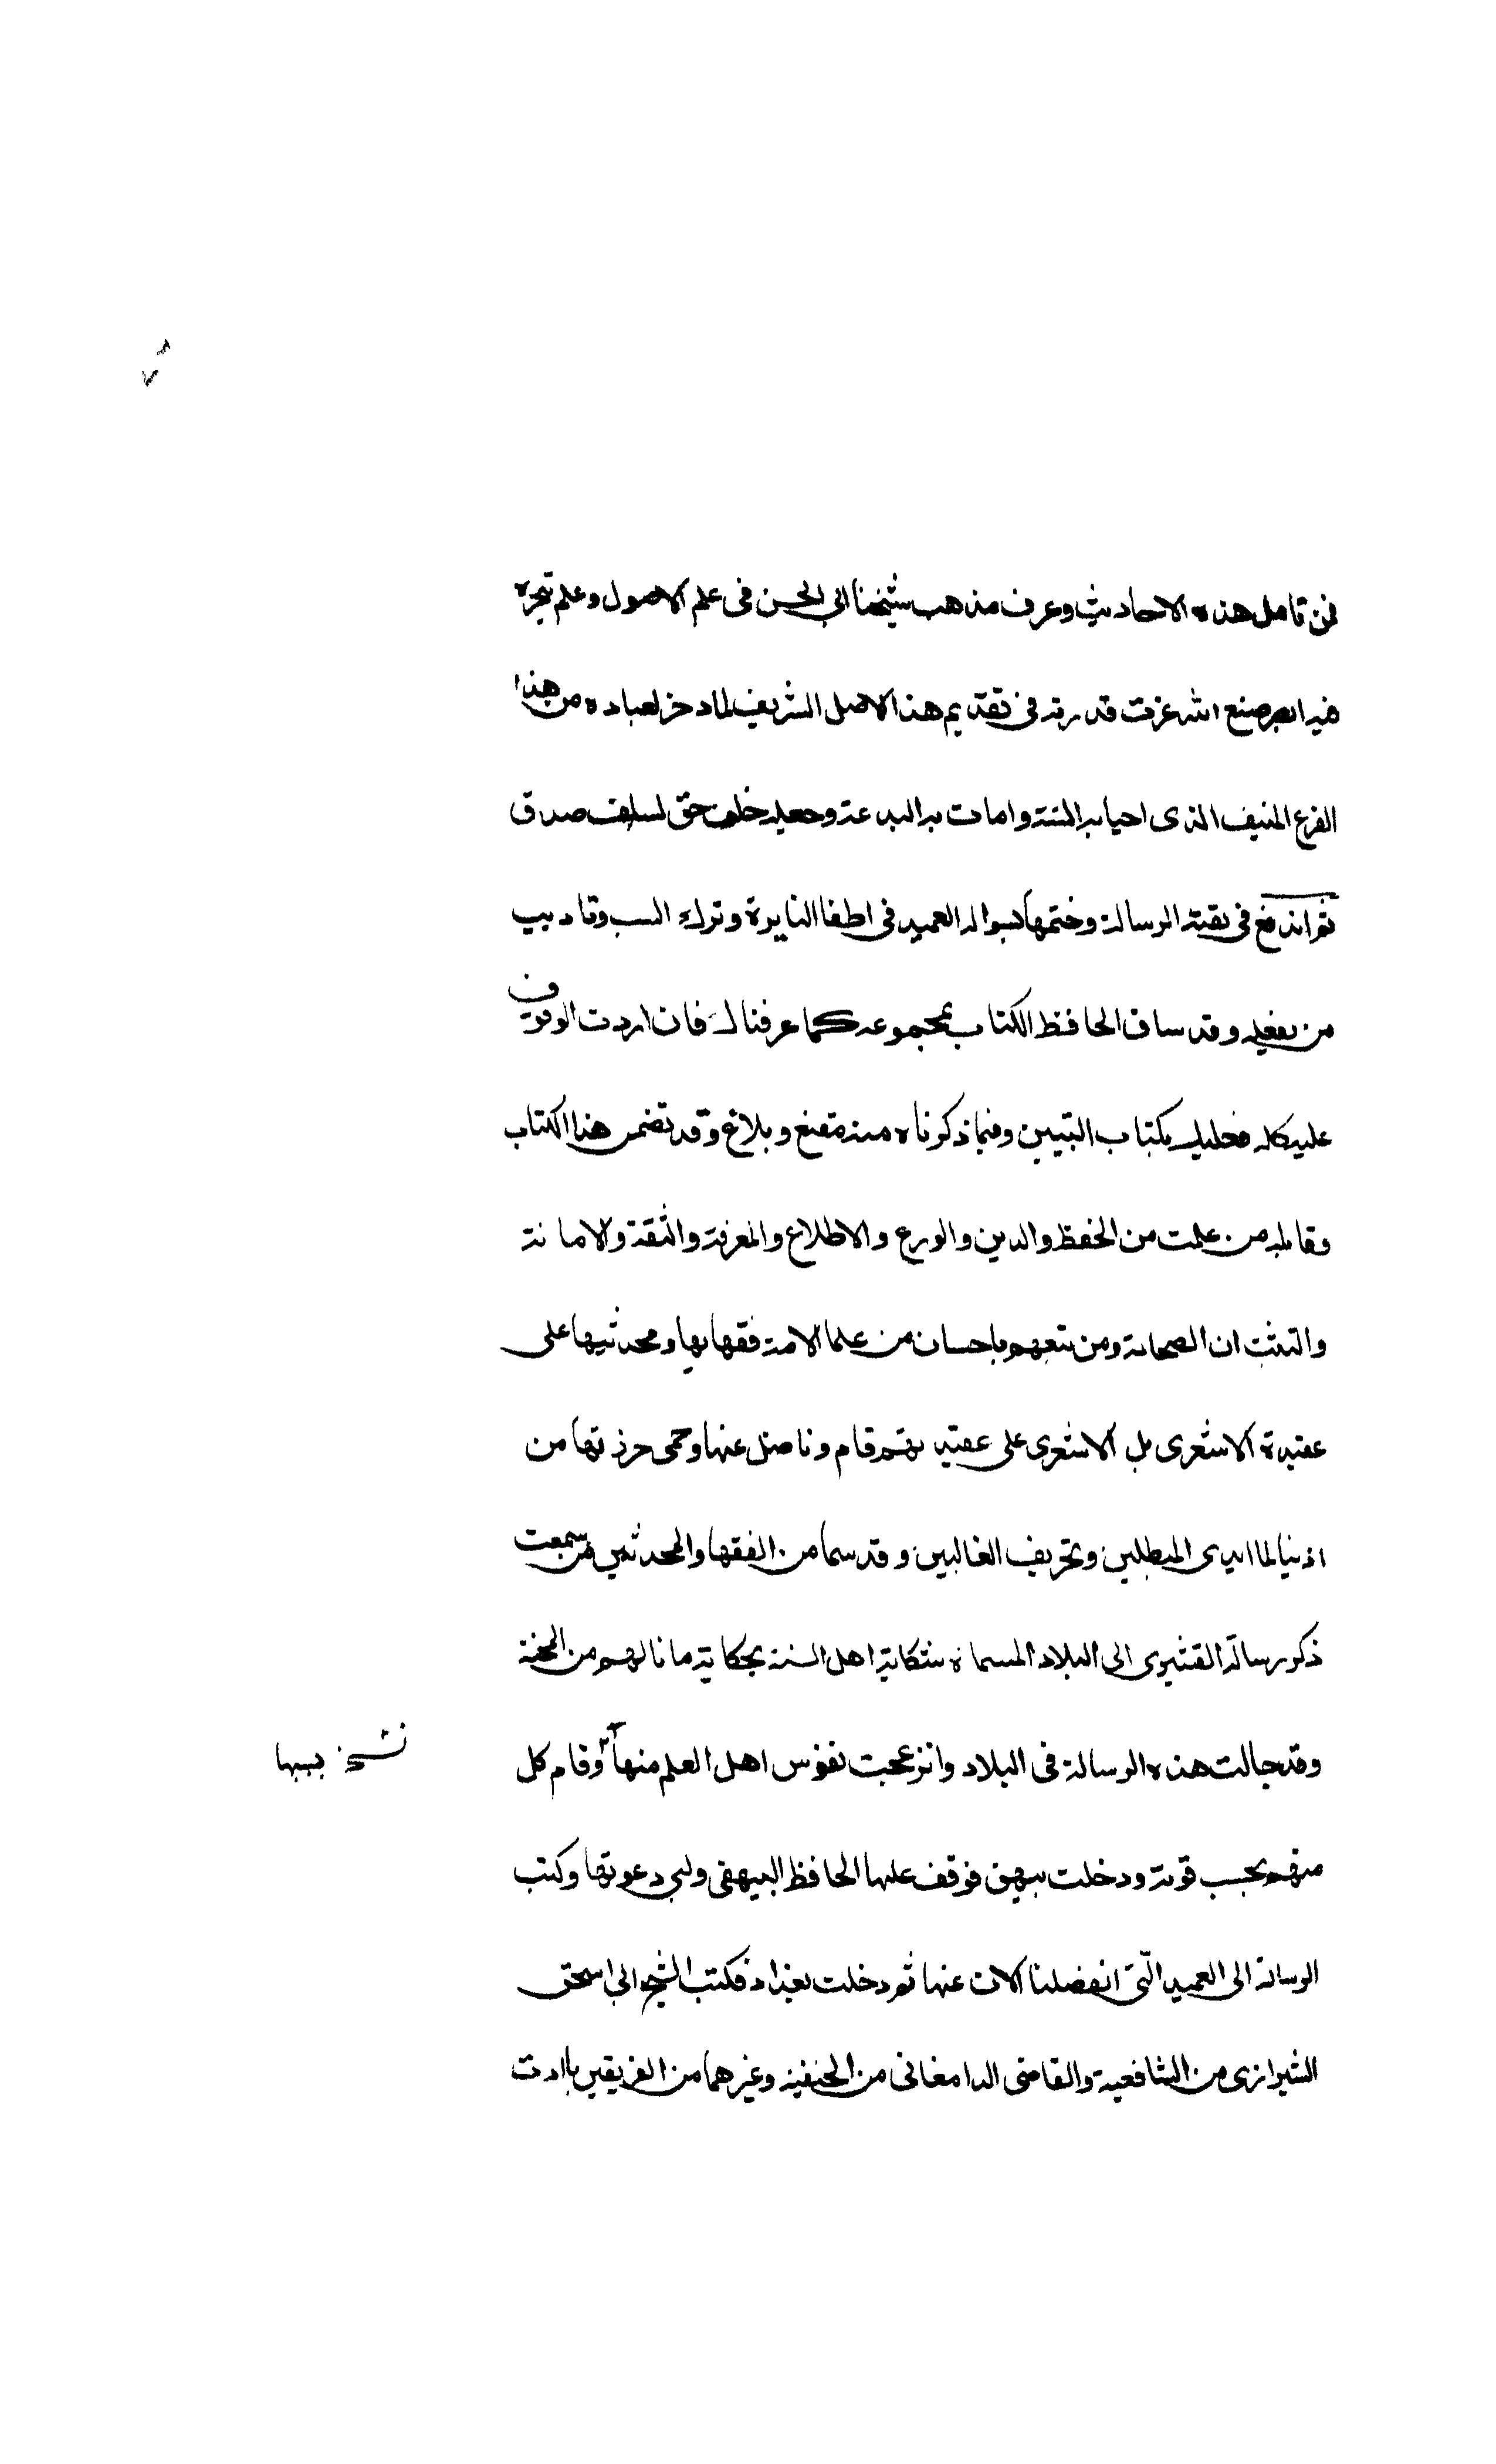 فمن تامل هذه الاحاديث وعرف مذهب شيخنا ابي الحسن في علم الاصول وعلم تبحره
فيه ابصر صنع الله عزت قدرته في تقديم هذا الاصل الشريف لما دخر لعباده من هذا
الفرع المنيف الذي احيا به السنة وامات به البدعة وجعله خلف حق لسلف صدق
ثم اندفع في بقية الرسالة وختمها بسوال العميد في اطفا النايرة وترك السب وتاديب
من يفعله وقد ساق الحافظ الكتاب بمجموعه كما عرفناك فان اردت الوقوف
عليه كله فعليك بكتاب التبيين وفيما ذكرناه منه مقنع وبلاغ وقد تضمن هذا الكتاب
وقايله من علمت من الحفظ والدين والورع والاطلاع والمعرفة والثقة والامانة
والتثبت ان الصحابة ومن تبعهم باحسان من علما الامة فقهايها ومحدثيها على
عقيدة الاشعرى بل الاشعرى على عقيدتهم قام وناضل عنها وحمى حوزتها من
ان ينالها ايدى المبطلين وتحريف الغالين وقد سما من الفقها والمحدثين من سمعت
ذكر رسالة القشيرى الى البلاد المسماة شكاية اهل السنة بحكاية ما نالهم من المحنة
وقد جالت هذه الرسالة في البلاد وانزعجت نفوس اهل العلم منها وقام كل
نسخة بسببها
منهم بحسب قوته ودخلت بيهق فوقف عليها الحافظ البيهقى ولبى دعوتها وكتب
الرسالة الى العميد التى انفصلنا الان عنها ثم دخلت بغداد فكتب الشيخ ابى اسحق
الشيرازى من الشافعية والقاضى الدامغانى من الحنفية وغيرهما من الفريقين